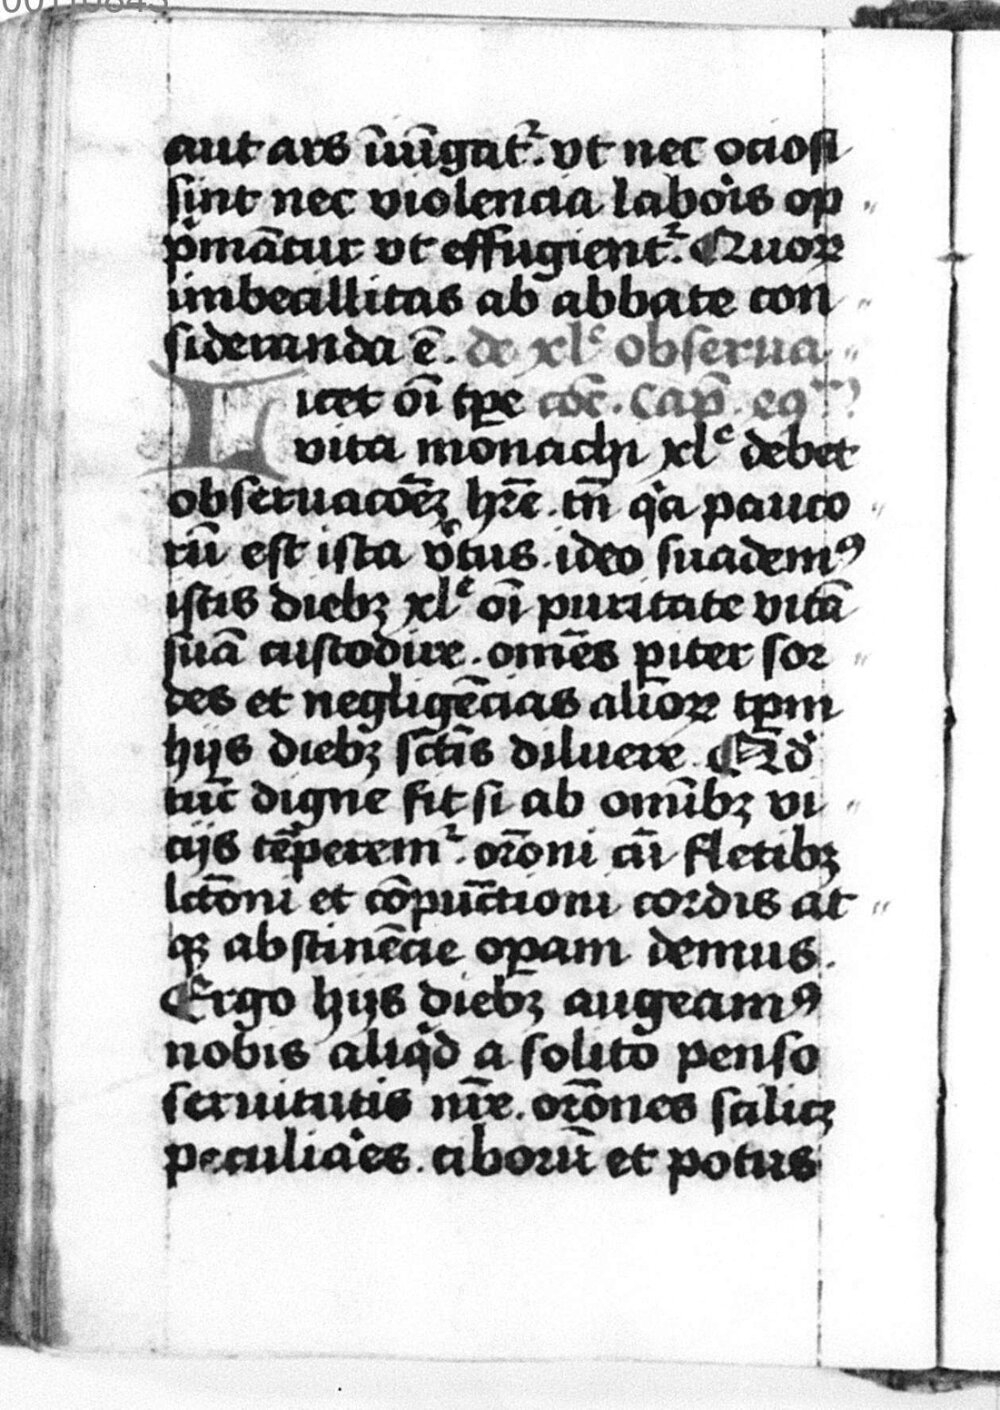 aut ars iniu̅gat᷑. vt nec ociosi
sint nec violencia labo͛is op
p͛ma̅tur vt effugient᷑. Quoꝝ
imbecillitas ab abbate con
sideranda e̅. de xlᵉ obserua
Licet oi̅ tꝑe co̅e. Cap̅.
vita monachi xlᵉ debet
obseruaco̅eꝫ hr̅e. tn̅ qͥa pauco
ru̅ est ista v͛tus. ideo suademꝰ
istis diebꝫ xlᵉ oi̅ puritate vita̅
sua̅ custodire. om̅es ꝑiter sor
des et neglige̅cias alioꝝ tꝑm
hijs diebꝫ sc̅tis diluere. Qͦd
tu̅c digne fit si ab om̅ibꝫ vi
cijs te̅perem᷑. or̅oni cu̅ fletibꝫ
lc̅oni et co̅pu̅ctioni cordis at
qꝫ abstine̅cie oꝑam demus.
Ergo hijs diebꝫ augeamꝰ
nobis aliqͥd a solito penso
seruitutis nr̅e. or̅ones scilicꝫ
peculia͛es. ciboru̅ et potus